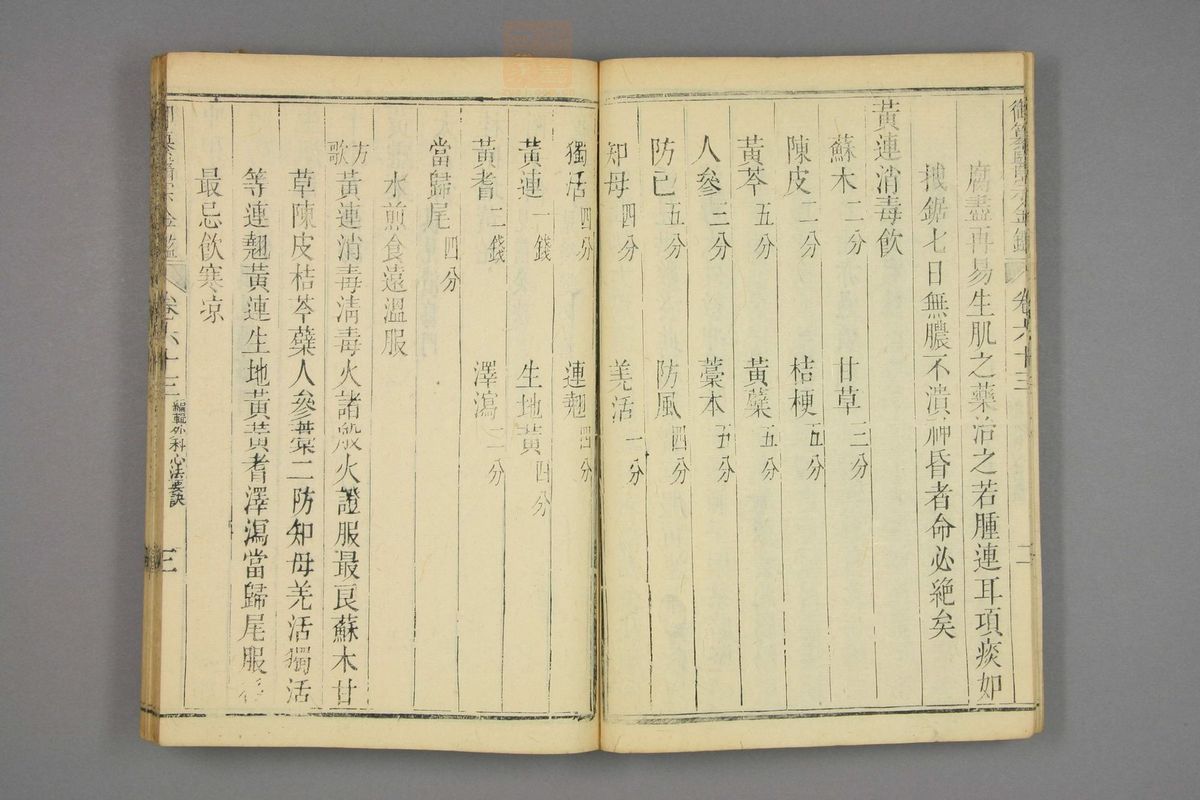 御纂醫宗金鑑 卷六十三 二
腐盡再易生肌之藥治之若腫連耳項痰如
拽鋸七日無膿不潰神昏者命必絶矣
黃連消毒飲
蘇木二分 甘草三分
陳皮二分 桔梗五分
黃芩五分 黃蘗五分
人參三分 藁本五分
防已五分 防風四分
知母四分 羌活一分
獨活四分 連翹四分
黃連一錢 生地黃四分
黃耆二錢 澤瀉二分
當歸尾四分
水煎食遠溫服
方歌 黃連消毒淸毒火諸般火證服最良蘇木甘
草陳皮桔芩蘗人參藁二防知母羌活獨活
等連翹黃連生地黃黃耆澤瀉當歸尾服後
最忌飲寒凉
醫宗金鑑 卷六十三 編輯外科心法要訣 三